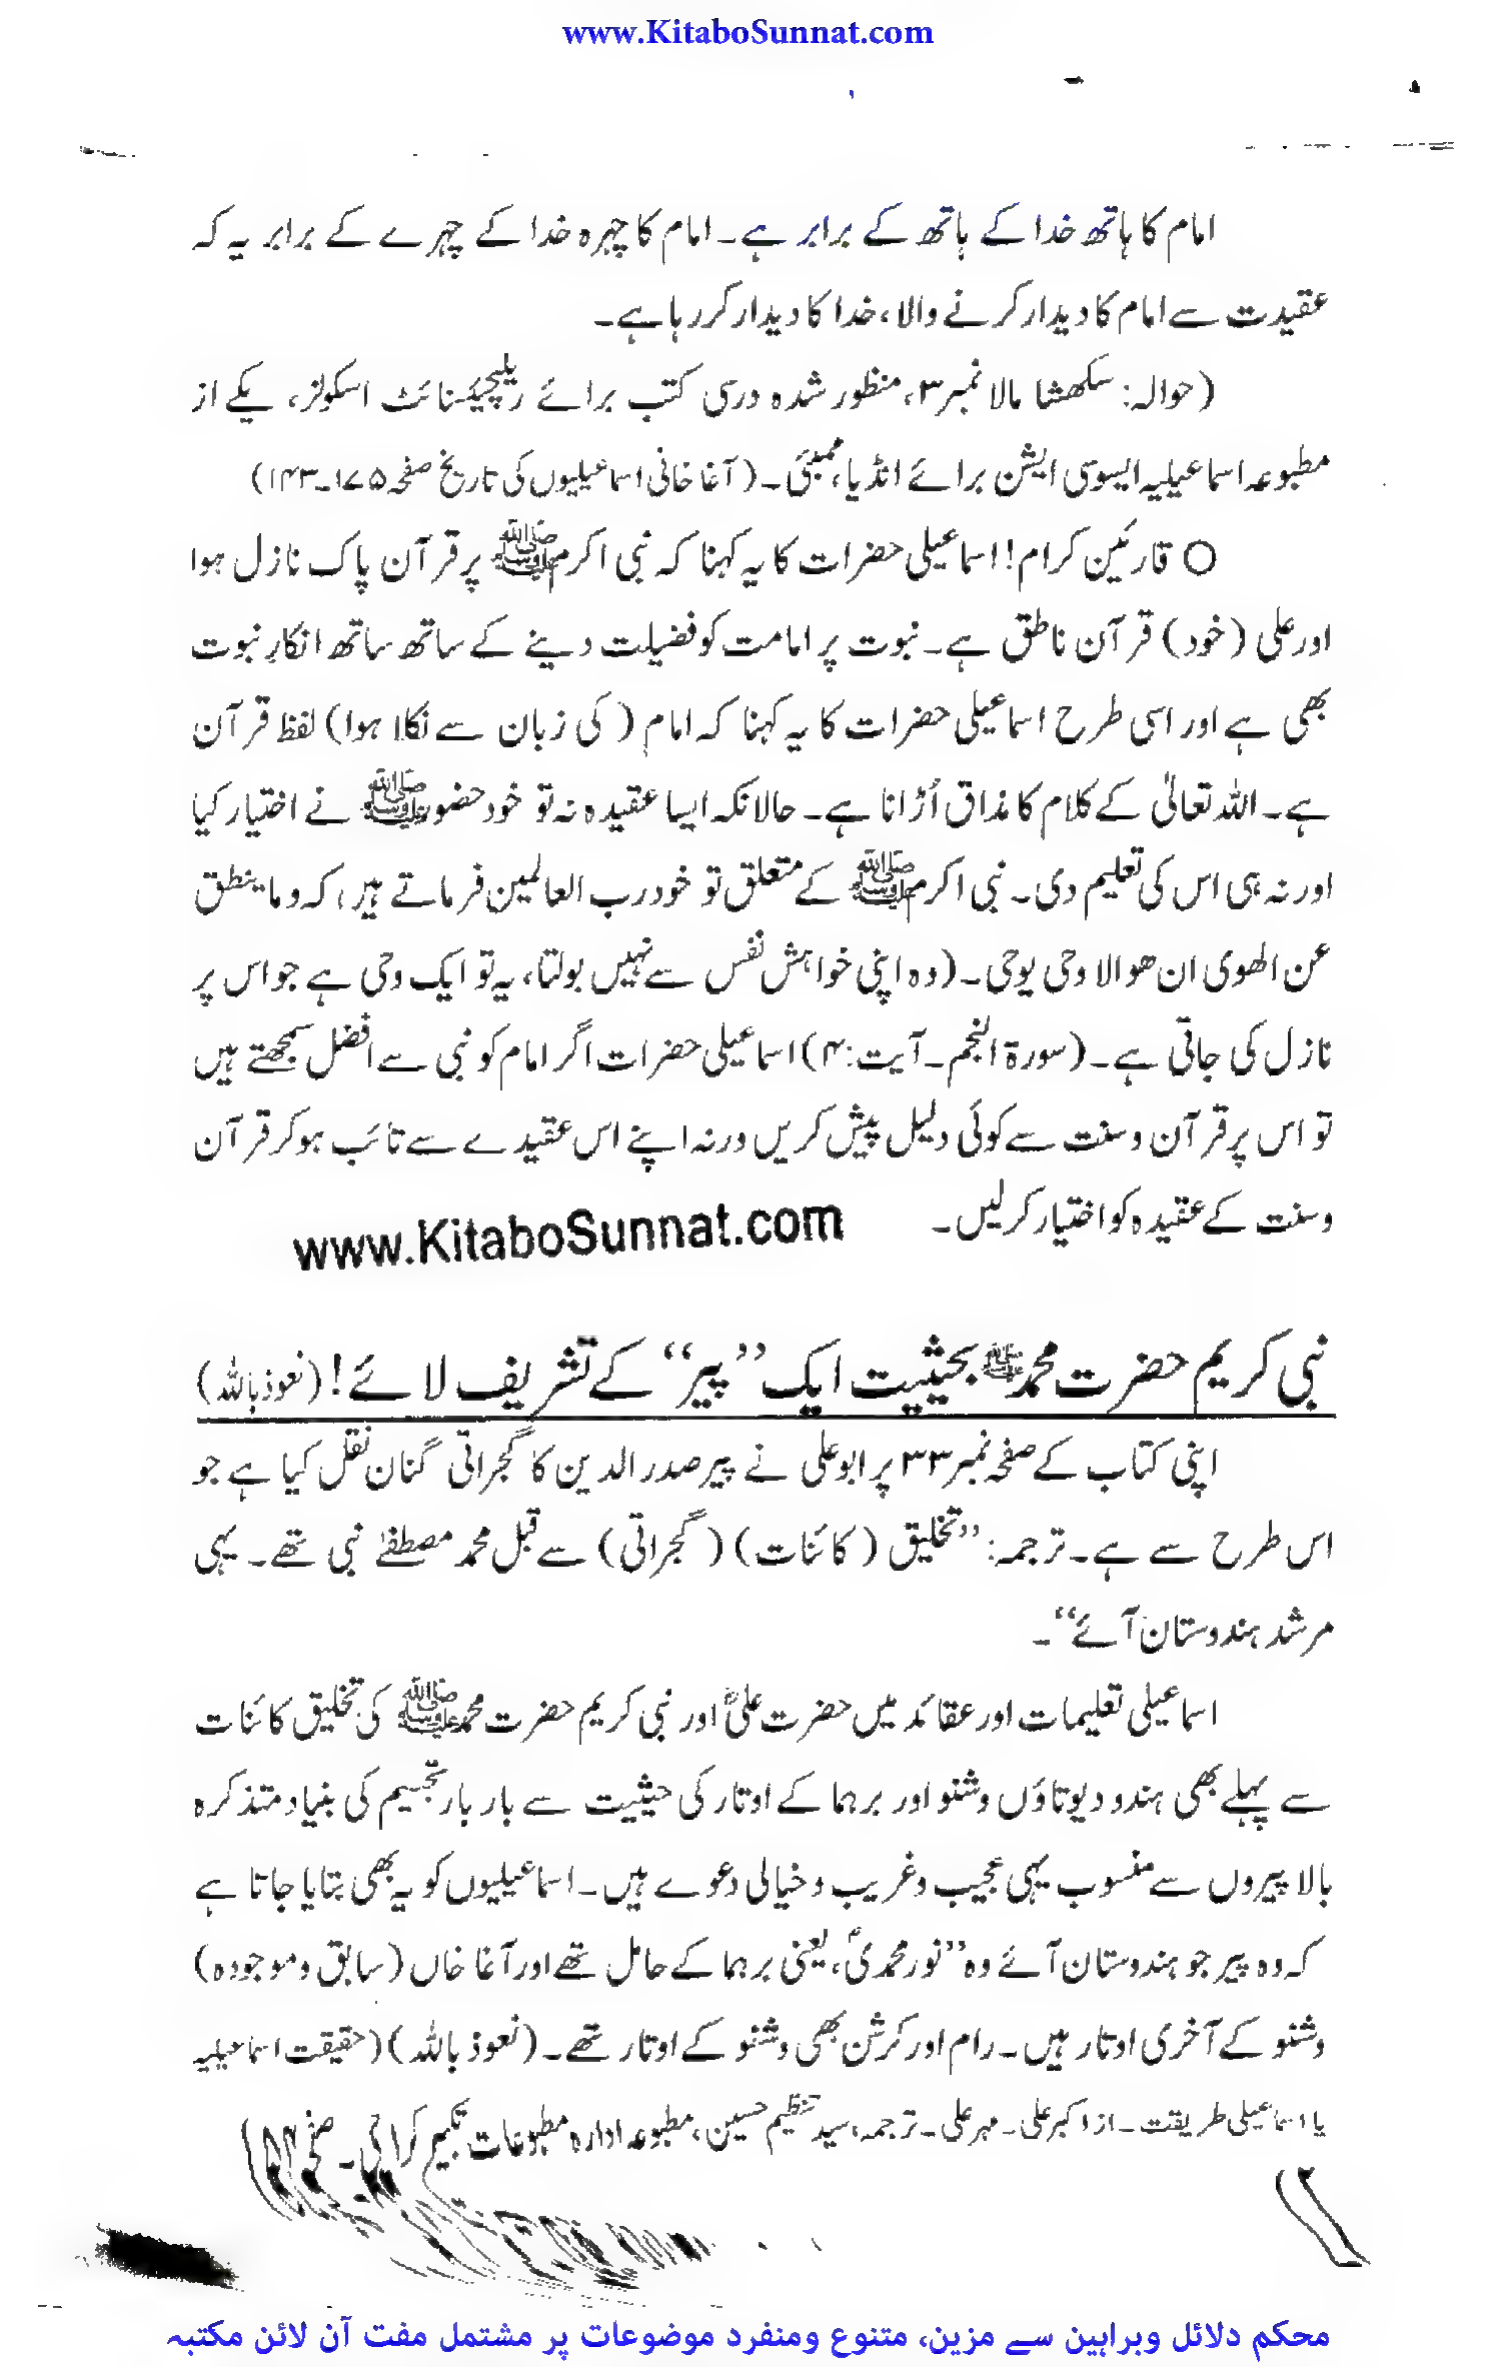 www.KitaboSunnat.com
امام کا ہاتھ خدا کے ہاتھ کے برابر ہے۔ امام کا چہرہ خدا کے چہرے کے برابر یہ کہ
عقیدت سے امام کا دیدار کرنے والا، خدا کا دیدار کر رہا ہے۔
(حوالہ: سکھشا مالا نمبر ۳، منظور شدہ درسی کتب برائے ریلیجیئس نائٹ اسکولز، یکے از
مطبوعہ اسماعیلیہ ایسوسی ایشن برائے انڈیا، ممبئی۔ (آغا خانی اسماعیلیوں کی تاریخ صفحہ ۱۷۵۔۱۴۳)
○ قارئین کرام! اسماعیلی حضرات کا یہ کہنا کہ نبی اکرم ﷺ پر قرآن پاک نازل ہوا
اور علی (خود) قرآن ناطق ہے۔ نبوت پر امامت کو فضیلت دینے کے ساتھ ساتھ انکارِ نبوت
بھی ہے اور اسی طرح اسماعیلی حضرات کا یہ کہنا کہ امام (کی زبان سے نکلا ہوا) لفظ قرآن
ہے۔ اللہ تعالیٰ کے کلام کا مذاق اُڑانا ہے۔ حالانکہ ایسا عقیدہ نہ تو خود حضور ﷺ نے اختیار کیا
اور نہ ہی اس کی تعلیم دی۔ نبی اکرم ﷺ کے متعلق تو خود رب العالمین فرماتے ہیں، کہ وما ینطق
عن الھوی ان ھو الا وحی یوحی۔ (وہ اپنی خواہش نفس سے نہیں بولتا، یہ تو ایک وحی ہے جو اس پر
نازل کی جاتی ہے۔ (سورۃ النجم۔ آیت: ۴) اسماعیلی حضرات اگر امام کو نبی سے افضل سمجھتے ہیں
تو اس پر قرآن و سنت سے کوئی دلیل پیش کریں ورنہ اپنے اس عقیدے سے تائب ہو کر قرآن
و سنت کے عقیدہ کو اختیار کر لیں۔
www.KitaboSunnat.com
نبی کریم حضرت محمد ﷺ بحیثیت ایک ”پیر“ کے تشریف لائے! (نعوذ باللہ)
اپنی کتاب کے صفحہ نمبر ۳۳ پر ابو علی نے پیر صدر الدین کا گجراتی گنان نقل کیا ہے جو
اس طرح سے ہے۔ ترجمہ: ”تخلیق (کائنات) (گجراتی) سے قبل محمد مصطفےٰ نبی تھے۔ یہی
مرشد ہندوستان آئے“۔
اسماعیلی تعلیمات اور عقائد میں حضرت علیؓ اور نبی کریم حضرت محمد ﷺ کی تخلیق کائنات
سے پہلے بھی ہندو دیوتاؤں وشنو اور برہما کے اوتار کی حیثیت سے بار بار تجسیم کی بنیاد متذکرہ
بالا پیروں سے منسوب یہی عجیب و غریب و خیالی دعوے ہیں۔ اسماعیلیوں کو یہ بھی بتایا جاتا ہے
کہ وہ پیر جو ہندوستان آئے وہ ”نور محمدیؐ، یعنی برہما کے حامل تھے اور آغا خاں (سابق و موجودہ)
وشنو کے آخری اوتار ہیں۔ رام اور کرشن بھی وشنو کے اوتار تھے۔ (نعوذ باللہ) (حقیقت اسماعیلیہ
یا اسماعیلی طریقت۔ از اکبر علی۔ مہر علی۔ ترجمہ، سید تنظیم حسین، مطبوعہ ادارہ مطبوعات تکبیر کراچی۔ صفحہ
محکم دلائل وبراہین سے مزین، متنوع ومنفرد موضوعات پر مشتمل مفت آن لائن مکتبہ